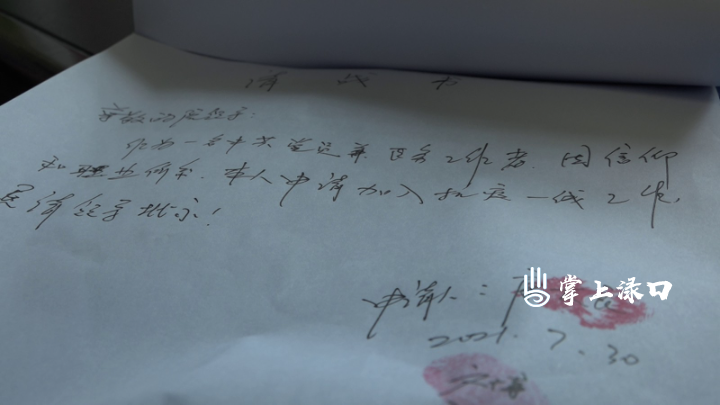 请战书
尊敬的院领导:
作为一名中共党员兼医务工作者,因信仰
和职业所系,本人申请加入抗疫一线工作,
恳请领导批示!
申请人:
掌上渌口
2021.7.30